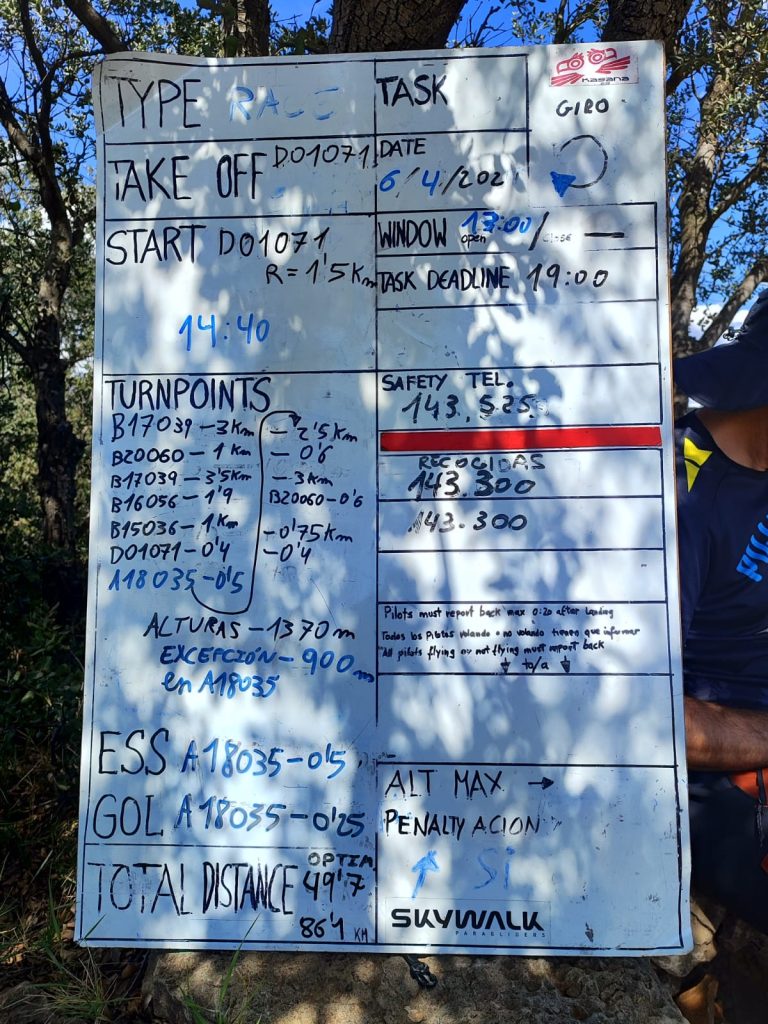 TYPE RACE
TASK
kasana
GIRO
TAKE OFF D01071
DATE
6/4/202
START D01071
R = 1'5 Km
14:40
WINDOW 13:00 / —
open close
TASK DEADLINE 19:00
TURNPOINTS
B17039 - 3 Km
B20060 - 1 Km
B17039 - 3'5 Km
B16056 - 1'9
B15036 - 1 Km
D01071 - 0'4
A18035 - 0'5
- 2'5 Km
- 0'6
- 3 Km
B20060 - 0'6
- 0'75 Km
- 0'4
ALTURAS - 1370 m
EXCEPCIÓN - 900 m
en A18035
SAFETY TEL.
143.525
RECOGIDAS
143.300
143.300
Pilots must report back max 0:20 after landing
Todos los Pilotos volando o no volando tienen que informar
"All pilots flying or not flying must report back
to/a
ESS A18035 - 0'5
GOL A18035 - 0'25
TOTAL DISTANCE
OPTIM
49'7
86'1 KM
ALT MAX →
PENALTY ACION
↑ Si
SKYWALK
PARAGLIDERS